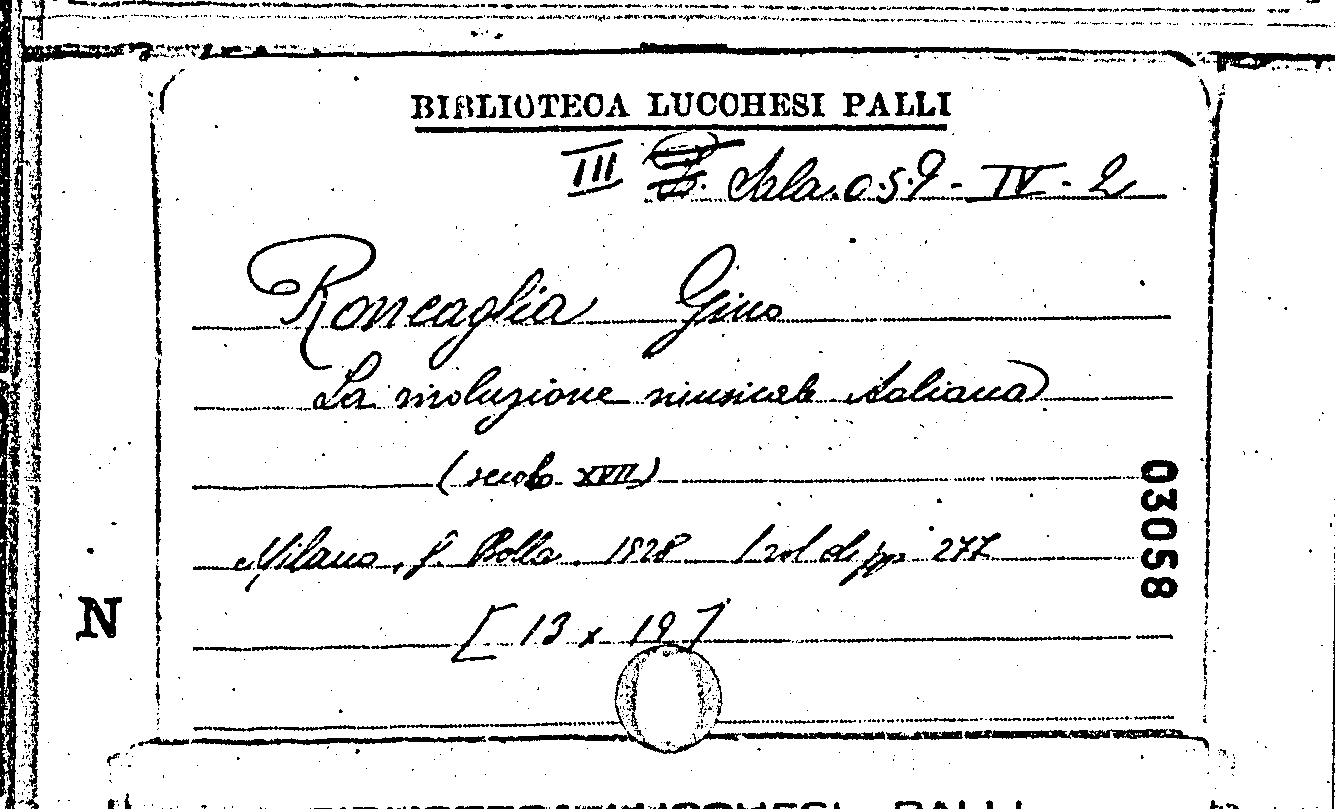 BIBLIOTECA LUCCHESI PALLI
III Sala. 0.5.9 - IV - 2
Roncaglia Gino
La rivoluzione musicale italiana
(secolo XVII)
Milano, G. Bolla. 1928 1 vol di pp 277
[13 x 19]
03058
N
PALLI